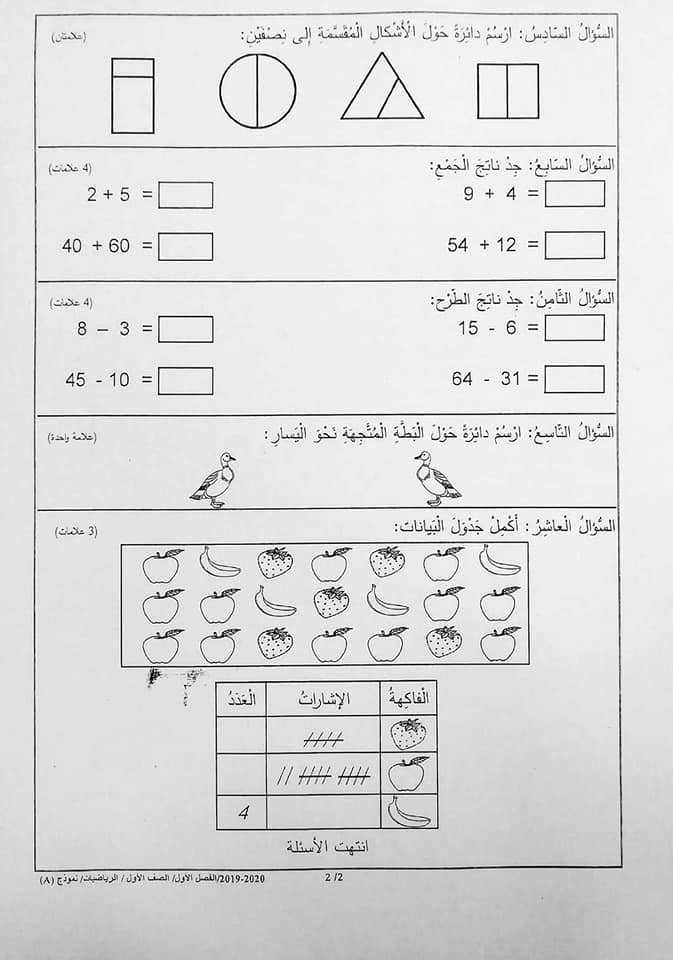 السُّؤالُ السّادِسُ: ارْسُمْ دائِرَةً حَوْلَ الْأَشْكالِ الْمُقَسَّمَةِ إِلى نِصْفَيْنِ: (علامتان)
السُّؤالُ السّابِعُ: جِدْ ناتِجَ الْجَمْعِ: (4 علامات)
9 + 4 =
2 + 5 =
54 + 12 =
40 + 60 =
السُّؤالُ الثّامِنُ: جِدْ ناتِجَ الطَّرْحِ: (4 علامات)
15 - 6 =
8 – 3 =
64 - 31 =
45 - 10 =
السُّؤالُ التّاسِعُ: ارْسُمْ دائِرَةً حَوْلَ الْبَطَّةِ الْمُتَّجِهَةِ نَحْوَ الْيَسارِ: (علامة واحدة)
السُّؤالُ الْعاشِرُ: أَكْمِلْ جَدْوَلَ الْبَيانات: (3 علامات)
الْفاكِهةُ الإِشاراتُ الْعَدَدُ
4
انتهت الأسئلة
2/2
2019-2020/الفصل الأول/ الصف الأول / الرياضيات/ نموذج (A)